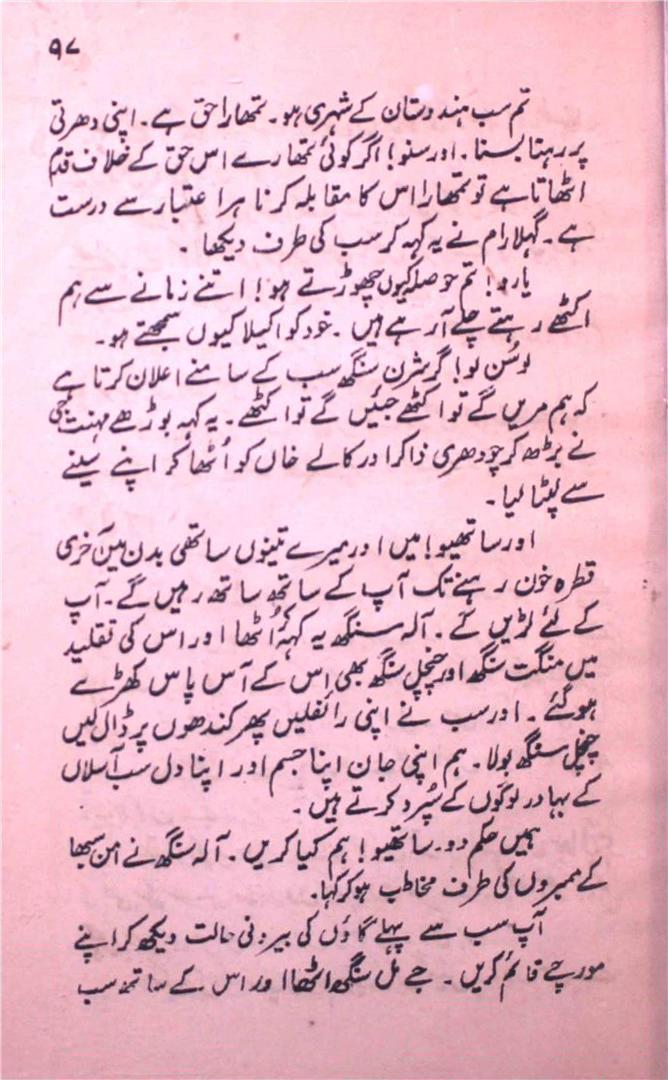 ۹۷
تم سب ہندوستان کے شہری ہو۔ تمھارا حق ہے۔ اپنی دھرتی
پر رہتا بسنا۔ اور سنو! اگر کوئی تمھارے اس حق کے خلاف قدم
اٹھاتا ہے تو تمھارا اس کا مقابلہ کرنا ہر اعتبار سے درست
ہے۔ گہلا رام نے یہ کہہ کر سب کی طرف دیکھا۔
یارو! تم حوصلہ کیوں چھوڑتے ہو! اتنے زمانے سے ہم
اکٹھے رہتے چلے آ رہے ہیں۔ خود کو اکیلا کیوں سمجھتے ہو۔
لو سُن لو! گرشرن سنگھ سب کے سامنے اعلان کرتا ہے
کہ ہم مریں گے تو اکٹھے جئیں گے تو اکٹھے۔ یہ کہہ بوڑھے مہنت جی
نے بڑھ کر چودھری ذاکر اور کالے خاں کو اُٹھا کر اپنے سینے
سے لپٹا لیا۔
اور ساتھیو! میں اور میرے تینوں ساتھی بدن میں آخری
قطرہ خون رہنے تک آپ کے ساتھ ساتھ رہیں گے۔ آپ
کے لئے لڑیں گے۔ آلہ سنگھ یہ کہہ اُٹھا اور اس کی تقلید
میں منگت سنگھ اور چنچل سنگھ بھی اس کے آس پاس کھڑے
ہو گئے۔ اور سب نے اپنی رائفلیں پھر کندھوں پر ڈال لیں
چنچل سنگھ بولا۔ ہم اپنی جان اپنا جسم اور اپنا دل سب آسلاں
کے بہادر لوگوں کے سُپرد کرتے ہیں۔
ہمیں حکم دو۔ ساتھیو! ہم کیا کریں۔ آلہ سنگھ نے امن سبھا
کے ممبروں کی طرف مخاطب ہو کر کہا۔
آپ سب سے پہلے گاؤں کی بیرونی حالت دیکھ کر اپنے
مورچے قائم کریں۔ جے مل سنگھ اٹھا اور اس کے ساتھ سب